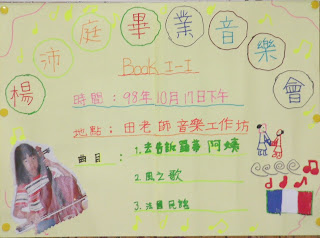 楊沛庭畢業音樂會
Book I-I
時間:98年10月17日下午
地點:田老師音樂工作坊
曲目:
1.去告訴羅蒂阿姨
2.風之歌
3.法國民謠